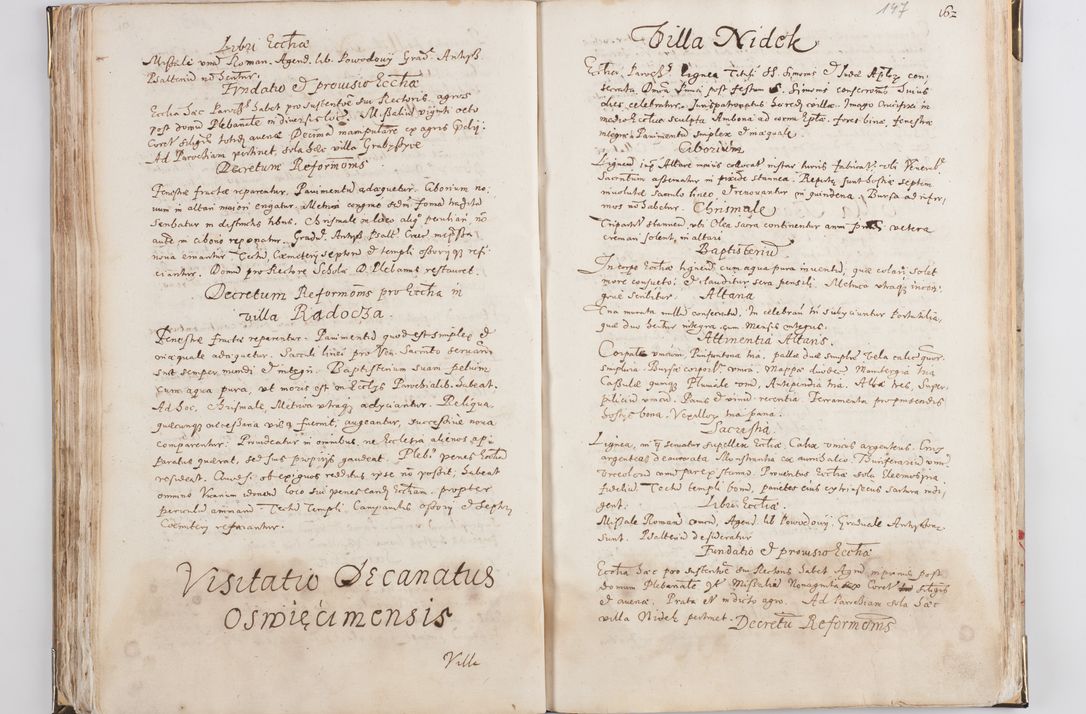 Libri Eccliæ
Missale unū Roman. Agend. lib. Powodowỹ Gradˡ Antyph
Psalteriū nō hentur.
Fundatio et provisio Eccliæ
Ecclia hæc Parchˡ habet pro sustentōe sui Rectoris agros
post domū Plebanalē in diversis locis. Missaliū viginti octo
Coret siliginis totidē avenæ Decima manipulare ex agris
Ad Parochiam pertinet, sola hæc villa Grabyszyce
Decretum Reformōnis
Fenestræ fractæ reparentur. Pavimentū adæquetur. Ciborium no,
vum in altari maiori erigatur. Metrica congrue sedm formā traditā
scribatur in distinctis libris. Chrismale in loco aliq̃ peculiari nō
autē in ciborio reponatur. Gradˡ. Antyph Psalt
nova emantur Tectū, Cæmeterij septem et templi ossorijq̃ refi,
ciantur. Domū pro Rectore Scholæ D. Plebanus restauret.
Decretum Reformōnis pro Ecclia in
villa Radocza.
Fenestræ fractæ reparentur. Pavimentū quod est simplex et
inæquale adæquetur. Sacculi linei pro Ven. Sacrāto servan
sint semper mundi et integri. Baptisterium suam pelvim
cum aqua pura, ut moris est in Ecclijs Parochialib. habeat.
Ad hoc, Chrismale, Metrica utraq̃ adijciantur. Reliqua,
quæcunq̃ necessaria visa fuerint, augeantur, successive nova
comparentur. Provideatur in omnibus, ne Ecclesia alienos ap,
paratus quærat, sed suis proprijs gaudeat. Plebˢ penes Eccliā
resideat. Quod si ob exiguos redditus ipse nō possit, habeat
omnino Vicarium idoneū loco sui penes eandē Eccliam. propter
periculū animarū Tectū Templi. Campanilis ossorij et septi
Cœmiterij reficiantur.
Visitatio Decanatus
Oswięcimensis
Villa
147
162
Villa Nidek
Ecclia Parochˡ lignea Tituli SS. Simonis et Iudæ Aplor. con,
secrata Dnica Prima post festum S. Simonis consecrationis huius
dies celebratur. Iurispatronatus hæredū villæ. Imago Crucifixi in
medio Eccliæ sculpta Ambona ad cornu Eplæ. fores binæ, fenestræ
integræ Pavimentū simplex et inæquale.
Ciborium
Ligneū iuxta Altare maius collocatū instar turris fabricatū ubi Venerabˡ
Sacrātum asservatur in pixide stannea. Repertæ sunt hostiæ septem
involutæ sacculo lineo et renovantur in quindena. Bursa ad infir,
mos nō habetur. Chrismale
Tripartitū stanneū ubi Olea sacra continentur anni vetera
cremari solent, in altari
Baptisteriū
In corpore Eccliæ ligneū cum aqua pura inventū, quæ colari solet
more consueto, et clauditur sera pensili. Metrica utraq̃ incon,
grue scribitur. Altaria
Una murata nullū consecratū. In celebran tri subijciuntur Portatilia,
quæ duo hentur integra cum Mensis integris.
Attinentia Altaris.
Corpale unicum. Purifontoria tria, pallæ duæ simplices Vela calic. quor.
simplicia. Bursæ corporl. unicā. Mappæ duodec. Manutergia tria
Casulæ quinq̃ Pluviale unū, Antependia tria. Albæ tres, Super,
pilliciū unicū. Panis et vinū recentia. Ferramenta pro pinsendis
hostijs bona. Vexilla tria pana.
Sacristia
Lignea, in q̃ servatur suppellex Eccliæ. Calix unicus argenteus. Crux
argentea deaurata Monstrantia ex aurichalco Thuribulariū unū
Urceolorū unū par ex stanno. Proventus Eccliæ sola Eleemosyna
fideliū. Tectū templi bonū, parietes eius extrinsecus sartura indi,
gent. Libri Eccliæ.
Missale Romanū unicū, Agend. lib Powodowij. Graduale Antyphon.
sunt. Psalteriū desideratur
Fundatio et provisio Eccliæ
Ecclia hæc pro sustentōe sui Rectoris habet Agrū inprimis post
domum Plebanalē It. Missalia Nonaginta Coret siliginis
et avenæ. Prata et in dicto agro. Ad Parochiam sola hæc
villa Nidek pertinet. Decretū Reformōnis